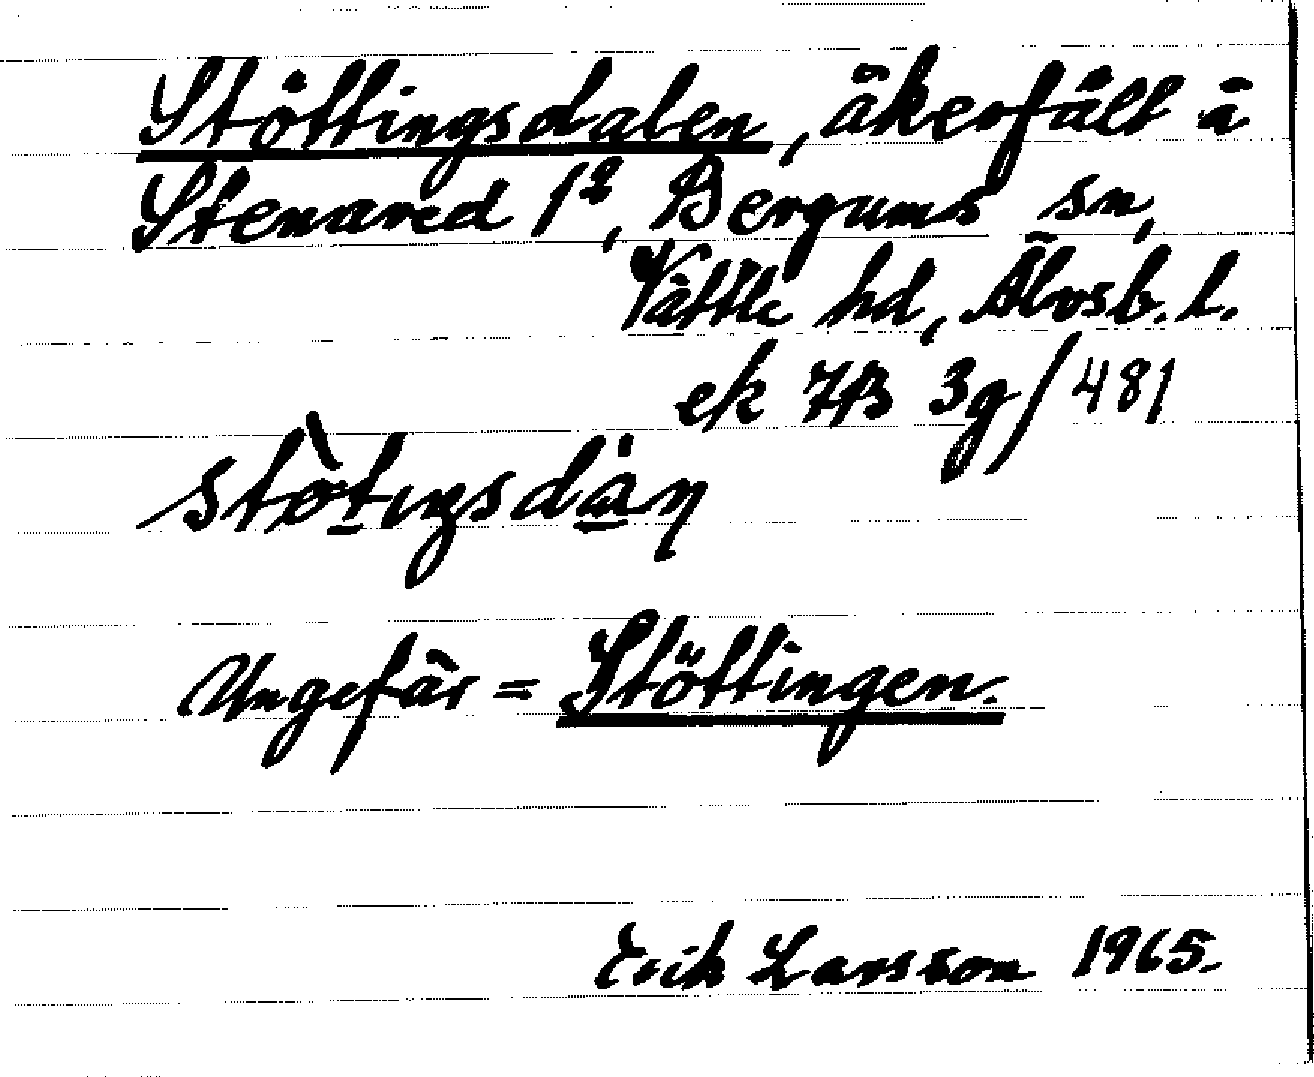 Stöttingsdalen, åkerfält å
Stenared 1², Bergums sn,
Vättle hd, Älvsb. l.
ek 7B 3g/481
stö̀t̲ıŋsdȧ̲ņ
Ungefär = Stöttingen.
Erik Larsson 1965.